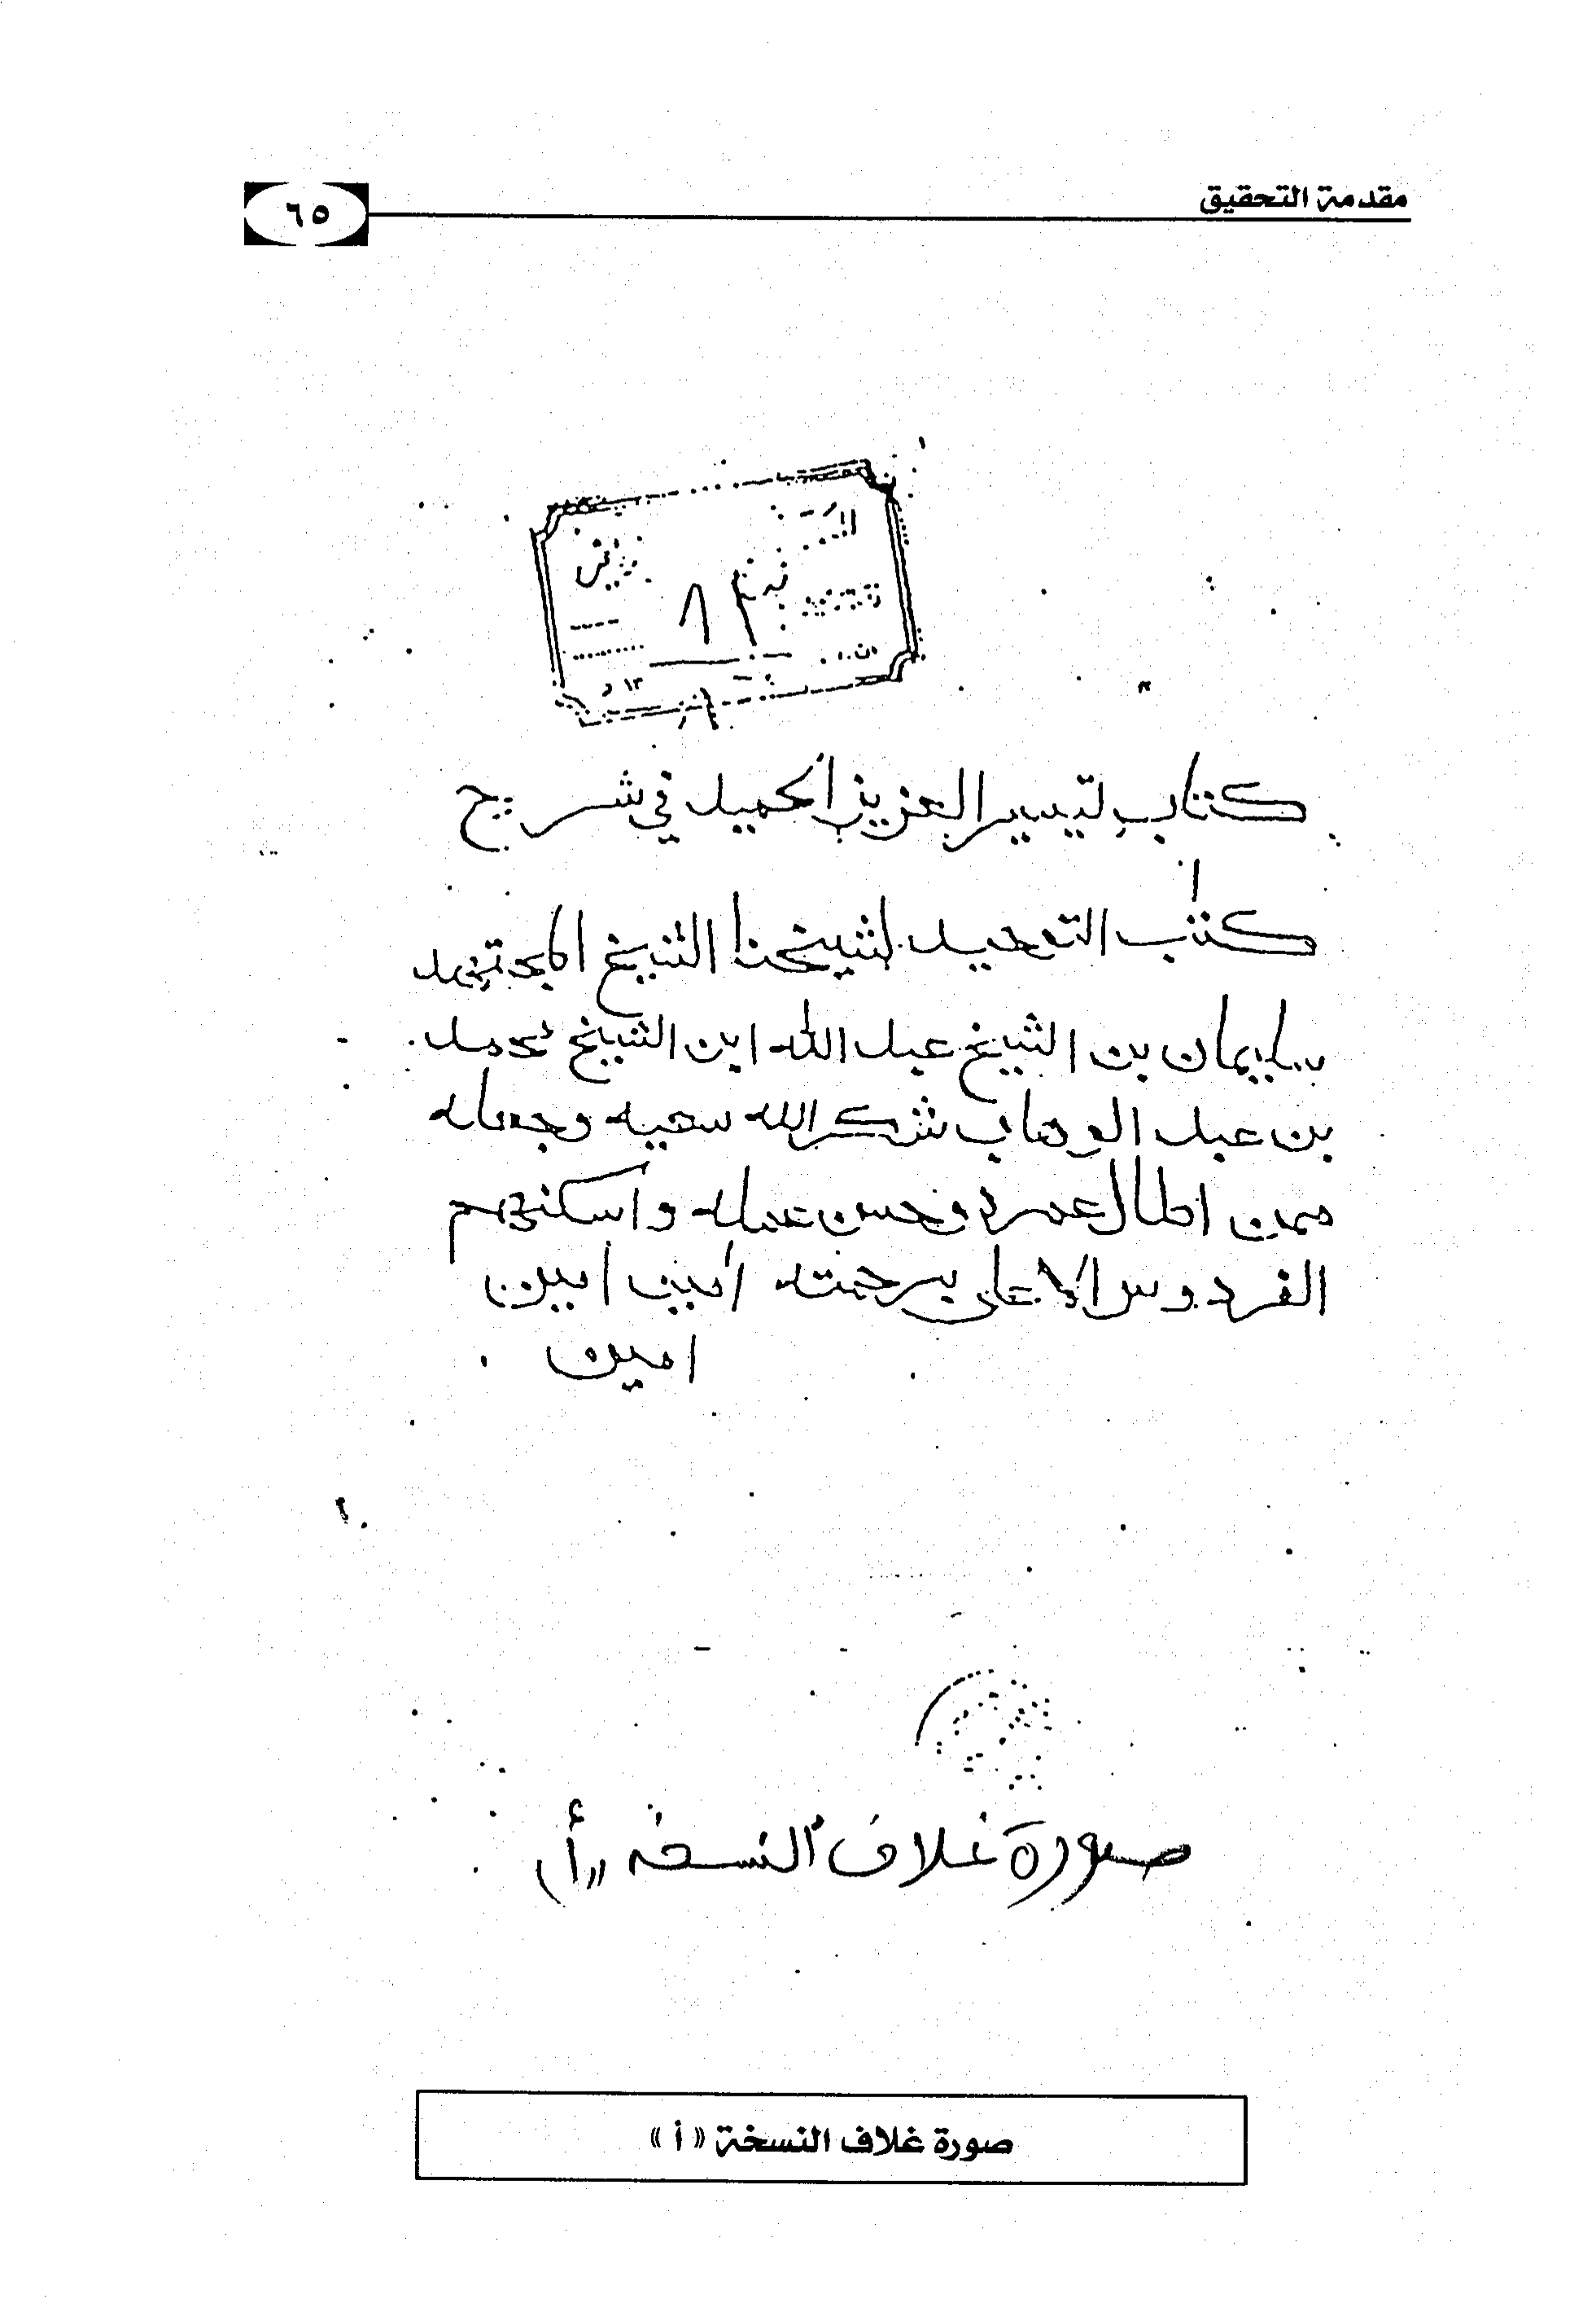 مقدمة التحقيق
٦٥
كتاب تيسير العزيز الحميد في شرح
كتاب التوحيد لشيخنا الشيخ المجتهد
سليمان بن الشيخ عبد الله ابن الشيخ محمد
بن عبد الوهاب شكر الله سعيه وجعله
ممن اطال عمره وحسن عمله واسكنهم
الفردوس الاعلى برحمته امين امين
امين
صورة غلاف النسخة «أ»
صورة غلاف النسخة «أ»